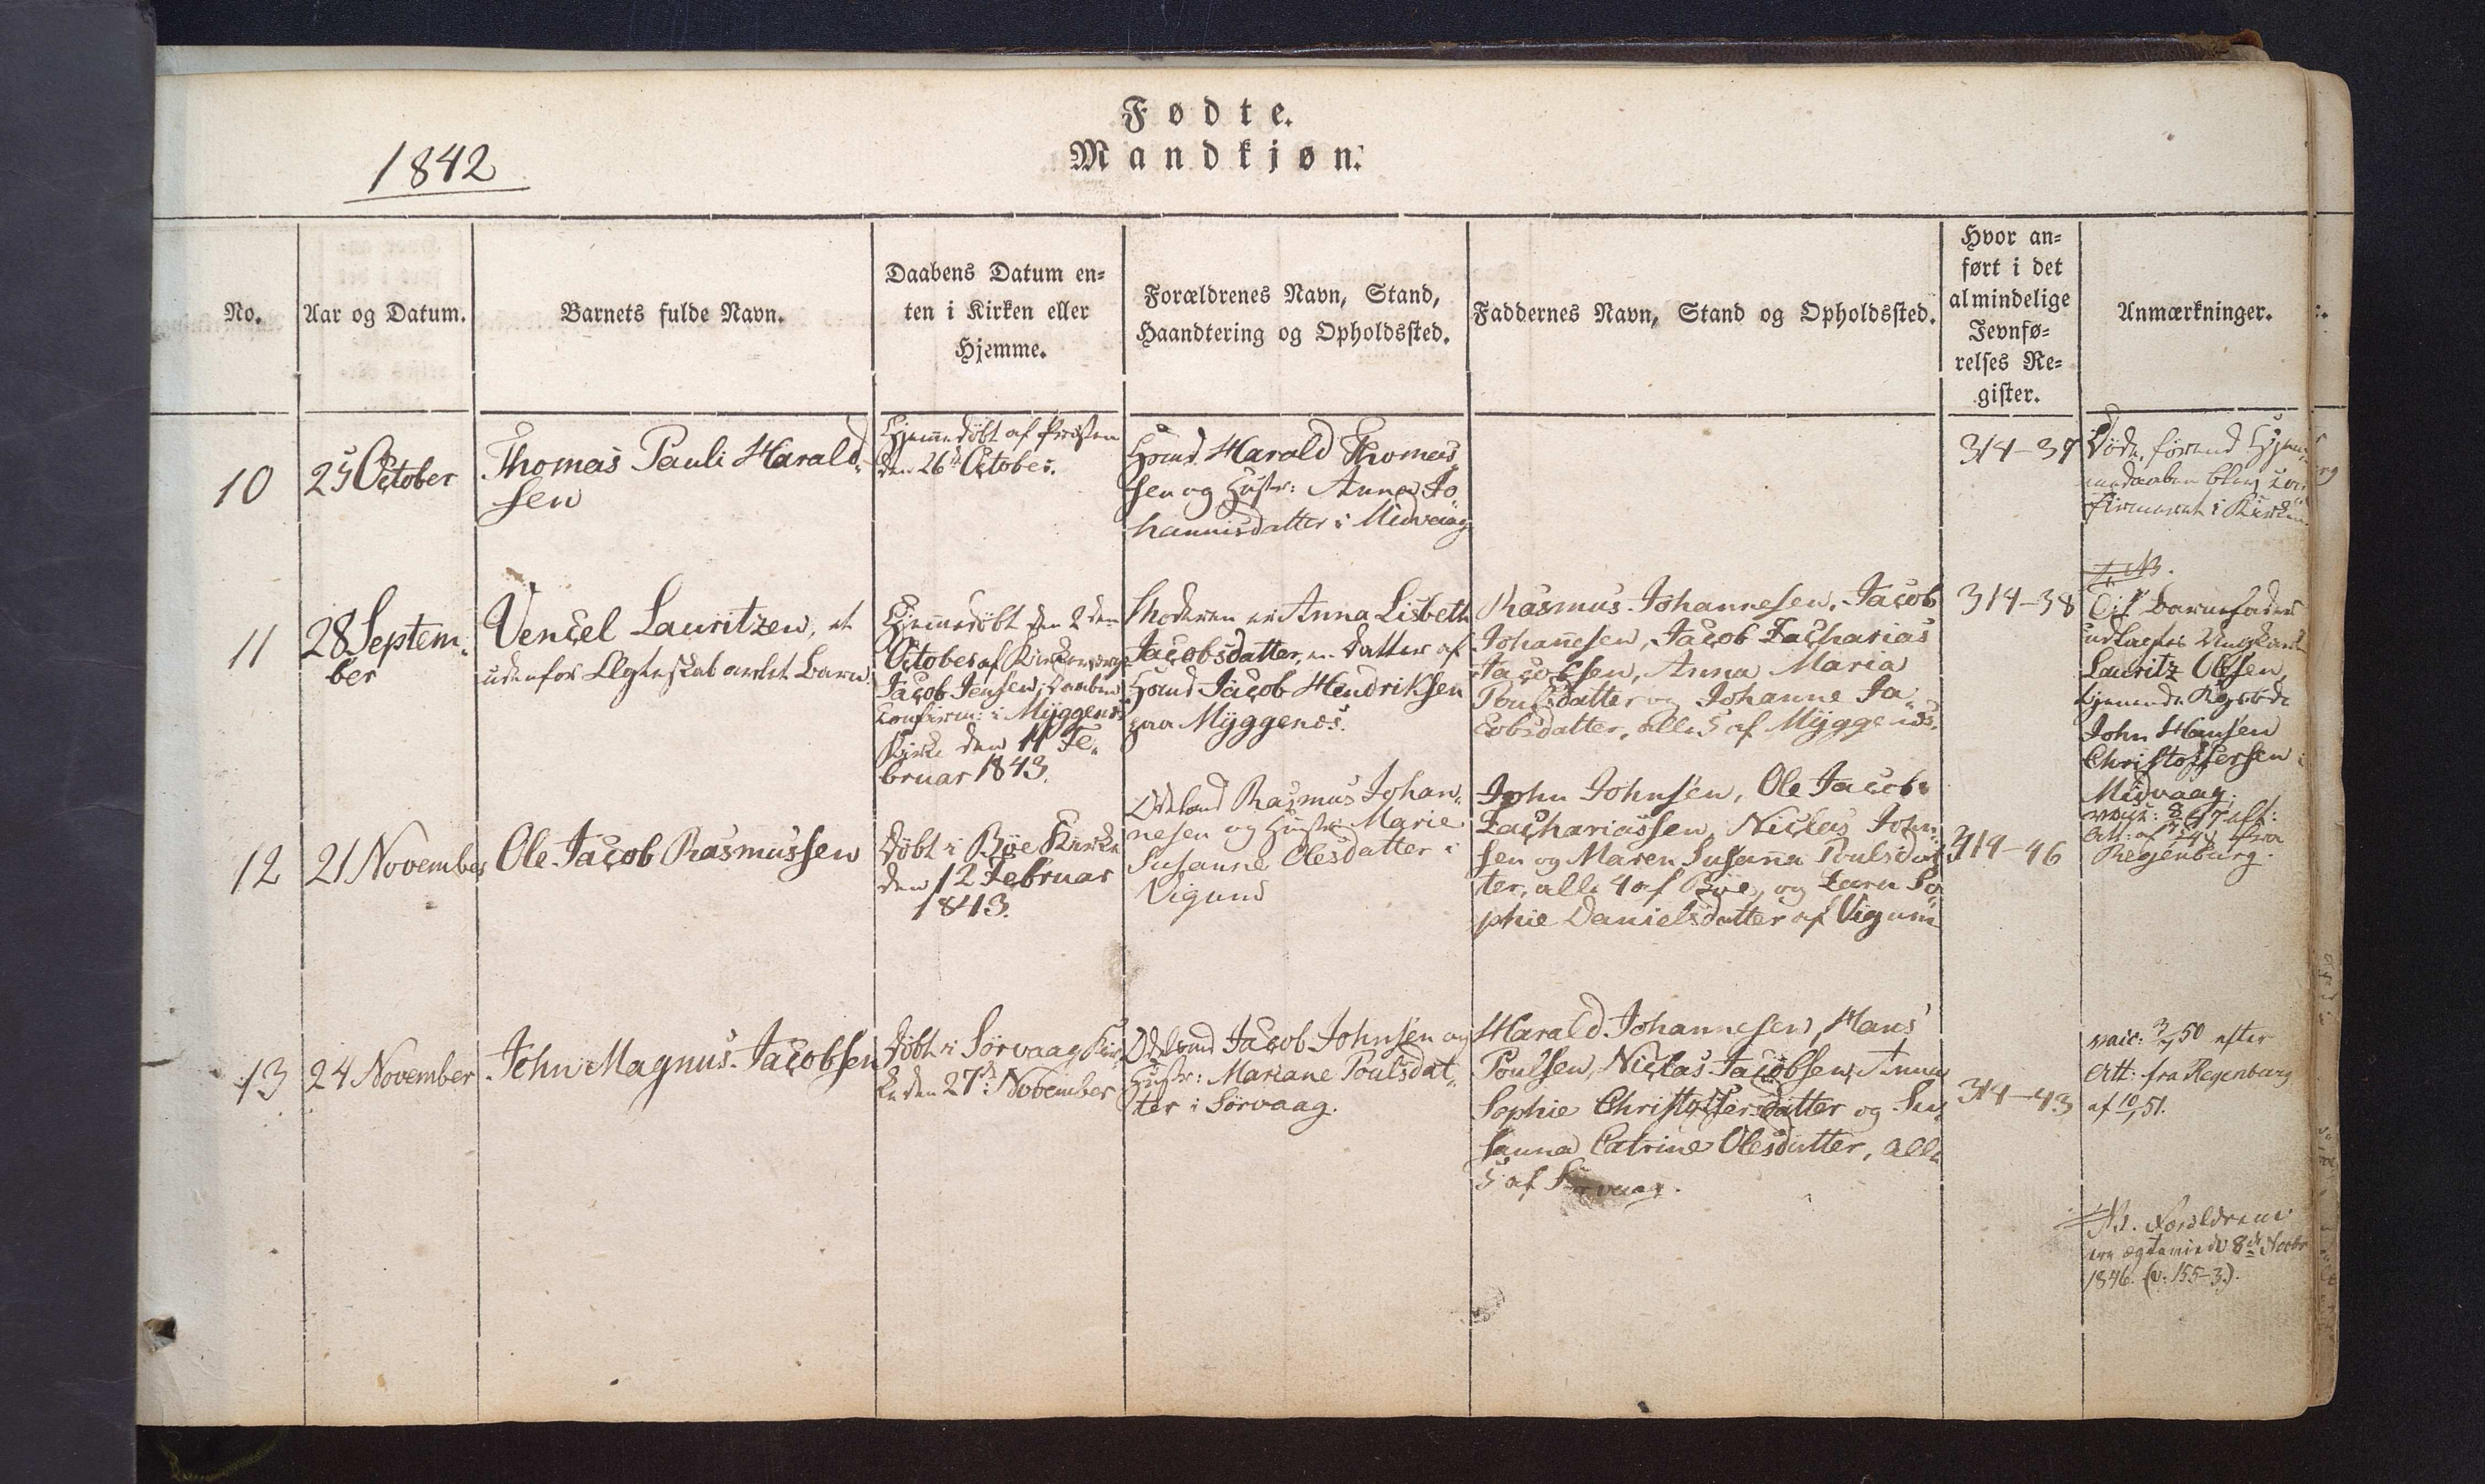 Fødte.
Mandkjøn.
1842
No.
Aar og Datum.
Barnets fulde Navn.
Daabens Datum en=
ten i Kirken eller
Hjemme.
Forældrenes Navn, Stand,
Haandtering og Opholdssted.
Faddernes Navn, Stand og Opholdssted.
Hvor an=
ført i det
almindelige
Jevnfø=
relses Re=
gister.
Anmærkninger.
10
25 October
Thomas Pauli Harald-
sen
Hjemmedøbt af Præsten
den 26de October.
Huusmd. Harald Thomas-
sen og Hustr: Anna Jo-
hannisdatter i Midvaag
314-37
Døde, førend Hjem-
medaaben blev con-
firmeret i Kirken
11
28 Septem-
ber
Vencel Lauritzen, et
udenfor Ægteskab avlet Barn.
Hjemmedøbt den 2den
October af
Jacob Jensen; Daaben
confirm: i Myggenæs
Kirke den 11 Fe-
bruar 1843.
Moderen er Anna Lisbeth
Jacobsdatter, en Datter af
Jacob Hendriksen
paa Myggenæs.
Rasmus Johannesen, Jacob
Johannesen, Jacob Zacharias
Jacobsen, Anna Maria
Poulsdatter og Johanne Ja-
cobsdatter, alle 5 af Myggenæs.
314-38
NB.
Til Barnefader
udlagdes Ungkarl
Lauritz Olsen,
tjenende
John Hansen
Christoffersen i
Midvaag.
12
21 November
Ole Jacob Rasmussen
Døbt i Bøe Kirke
den 12 Februar
1843.
Rasmus Johan-
nesen og Hustr: Marie
Susanne Olesdatter i
Vigum
John Johnsen, Ole Jacob
Zachariassen, Niclas John-
sen og Maren Susanna Poulsdat-
ter, alle 4 af Bøe, og So-
phie Danielsdatter af Vigum
314-46
vacc: 8/6 57 eft:
Att: af fra
Regenburg.
13
24 November
John Magnus Jacobsen
Døbt i Sörvaag Kir-
ke den 27de November
Jacob Johnsen og
Hustr: Mariane Poulsdat-
ter i Sörvaag.
Harald Johannesen, Hans
Poulsen, Niclas Jacobsen, Anna
Sophie Christoffersdatter og Su-
sanna Catrine Olesdatter, alle
5 af Sörvaag.
314-43
vacc: 3/7 50 efter
Att: fra Regenburg
af 10/7 51.
NB. Forældrene
ere ægteviede 8de Novbr
1846. (v. 155-3).